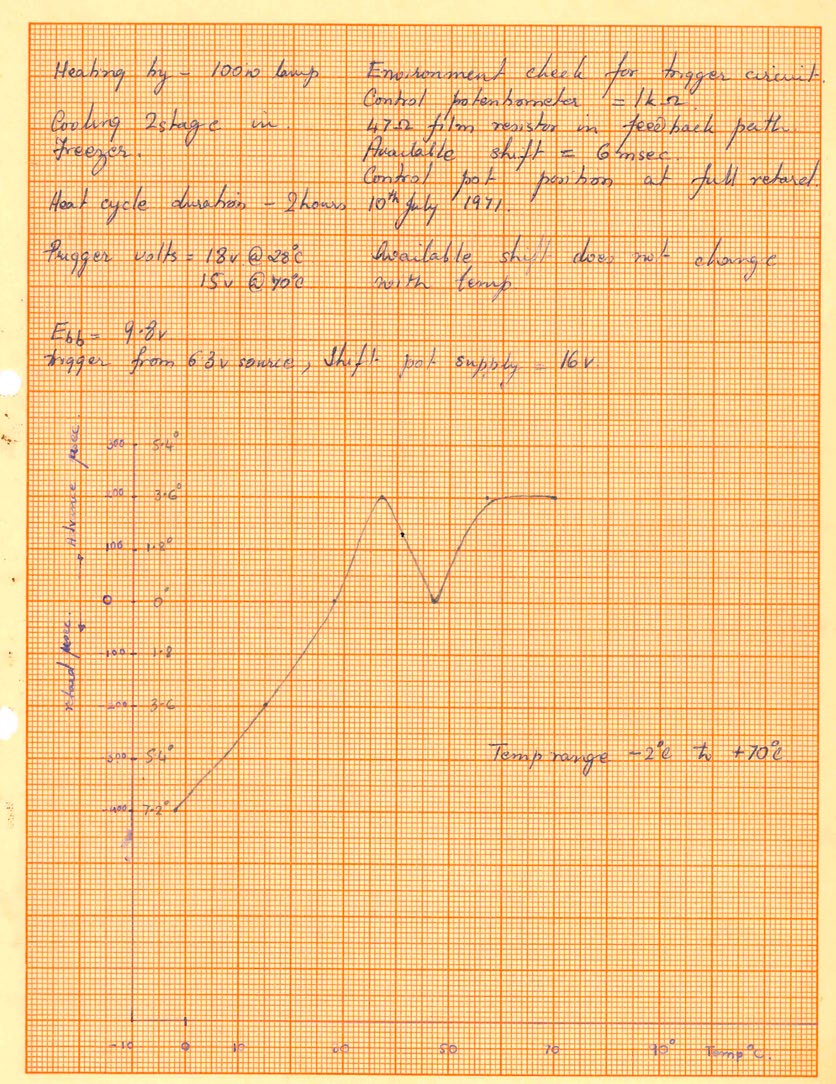 Heating by - 100w lamp
Cooling 2stage in
freezer.
Heat cycle duration - 2hours
Environment check for trigger circuit.
Control potentiometer = 1kΩ
47Ω film resistor in feedback path
Available shift = 6msec.
Control pot position at full retard.
10th July 1971.
Trigger volts = 18v @ 28°c
15v @ 70°c
Available shift does not change
with temp
Ebb = 9.8v
trigger from 63v source, Shift pot supply = 16v.
Advance μsec.
retard μsec.
300 5.4°
200 3.6°
100 1.8°
0 0°
-100 1.8
-200 3.6
-300 5.4°
-400 7.2°
Temp range -2°c to +70°c
-10 0 10 50 70 90° Temp°C.